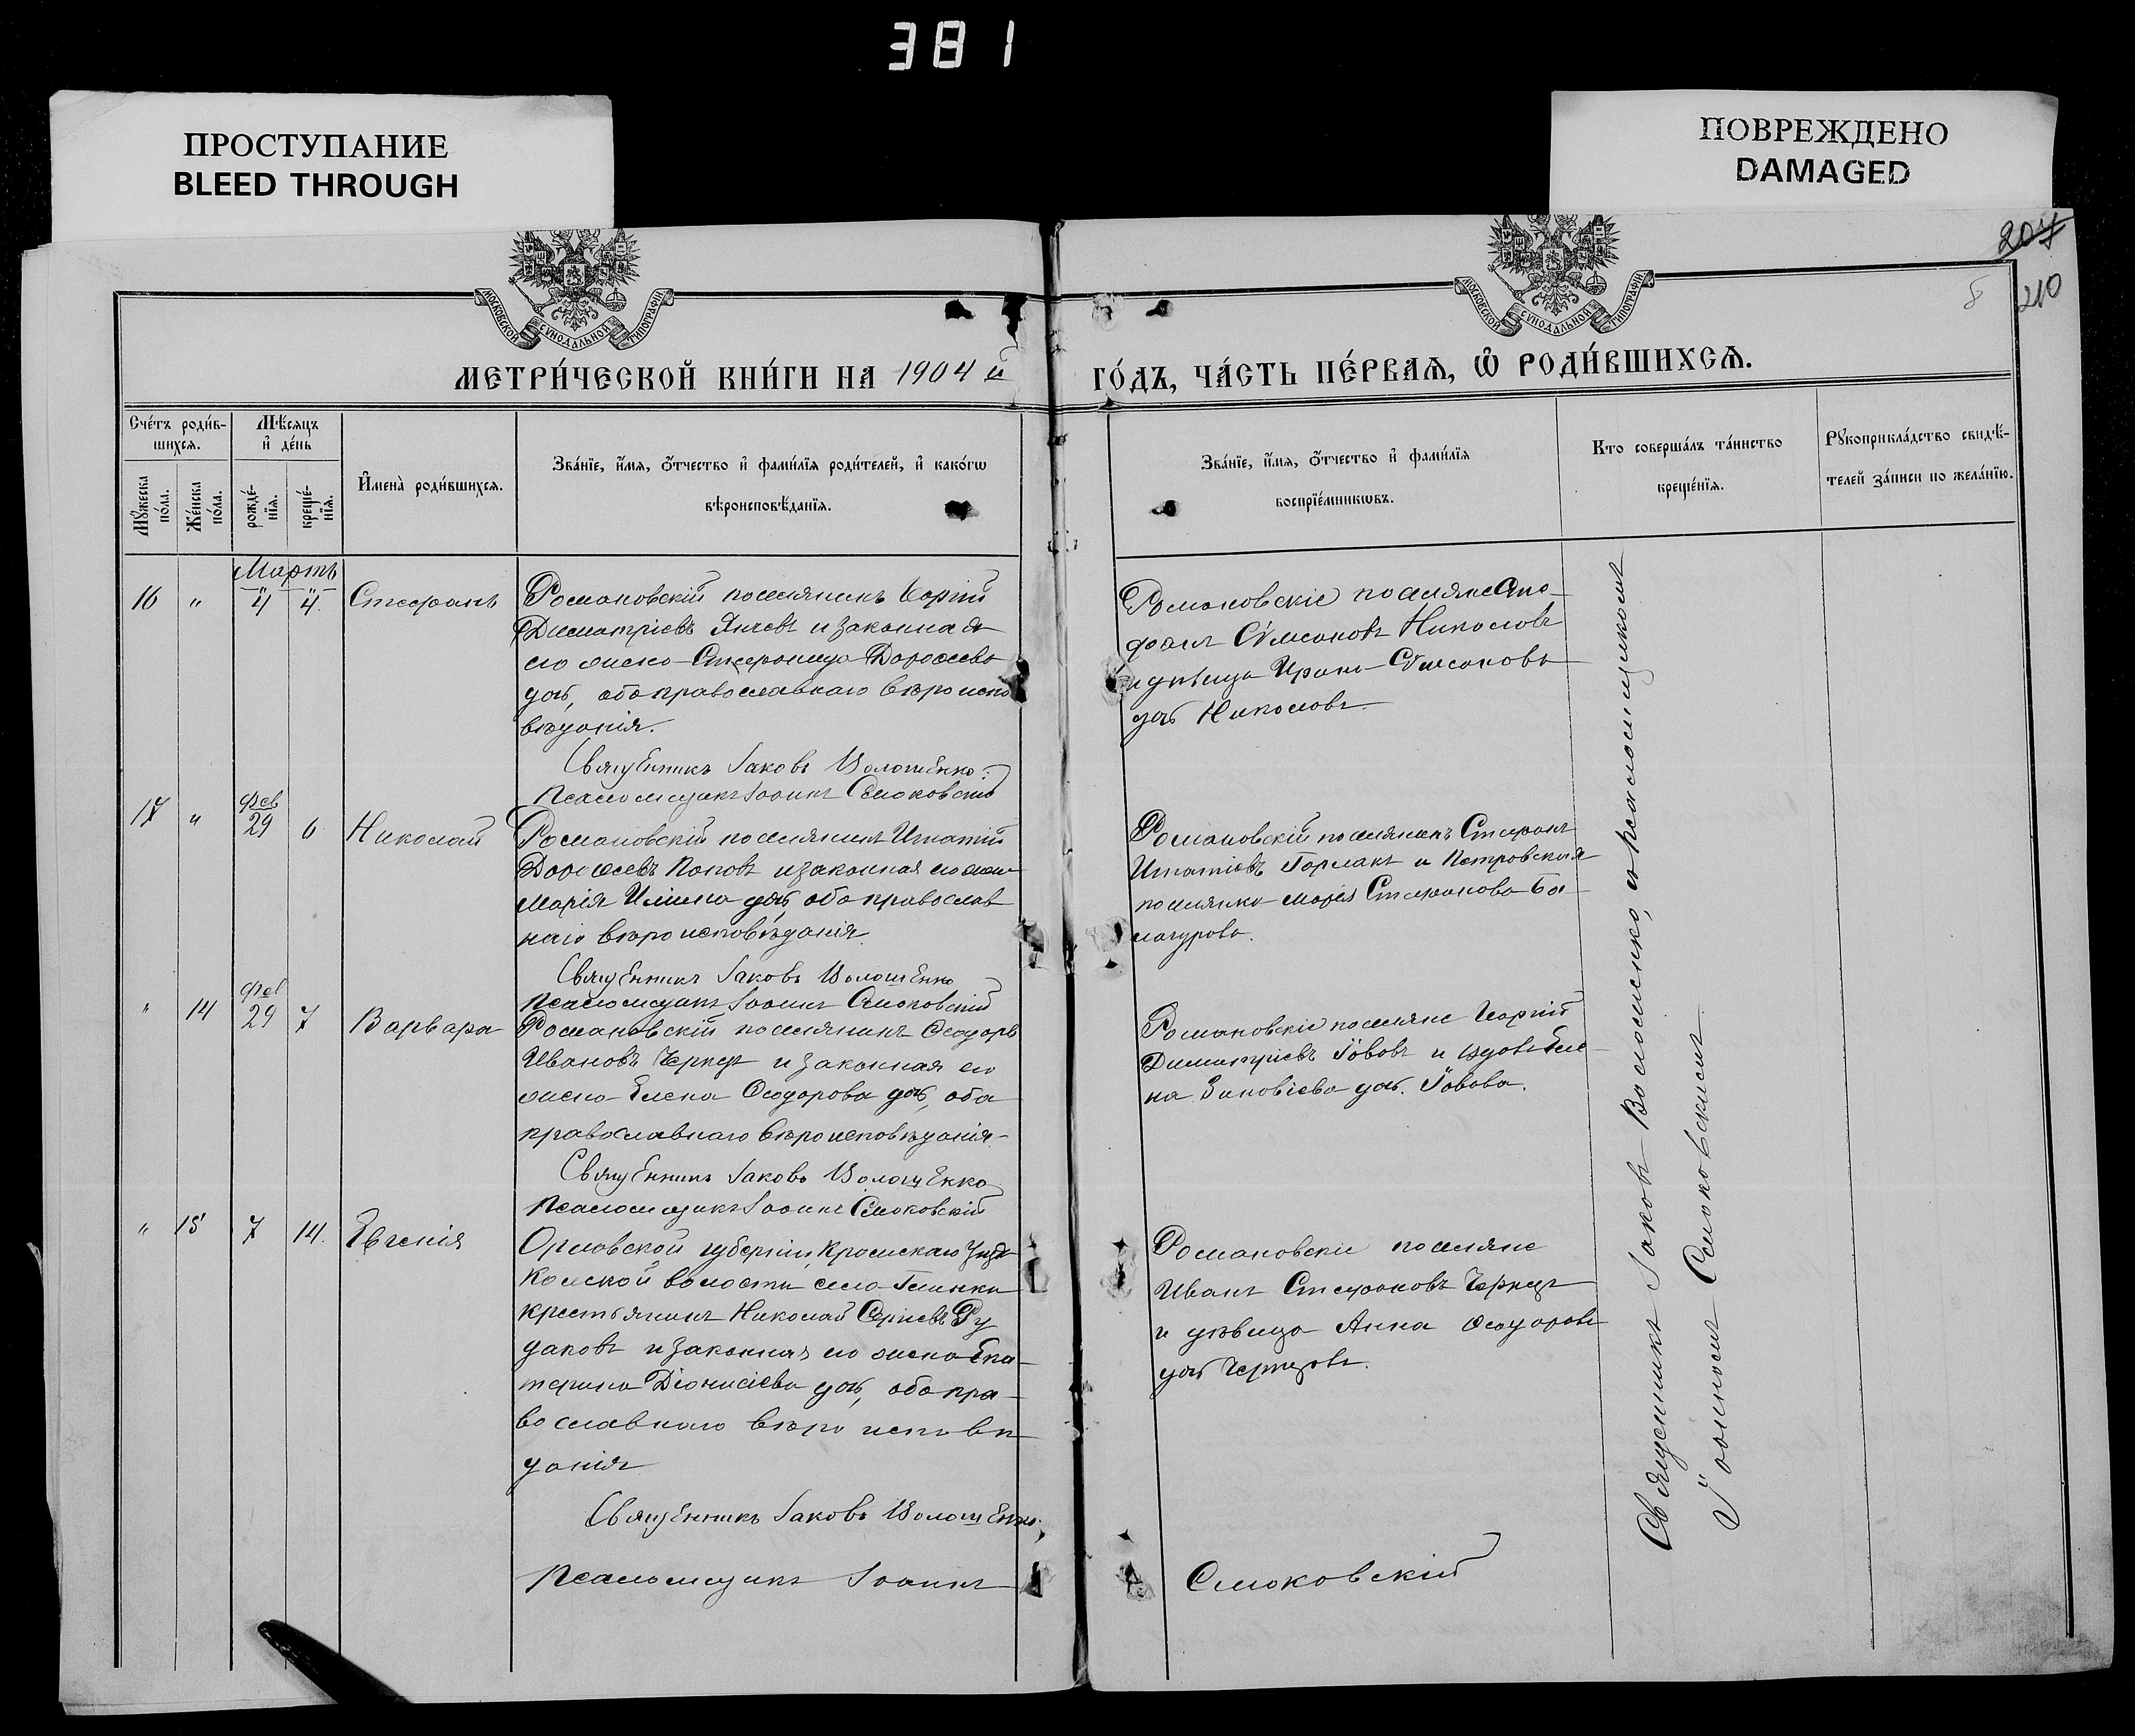 381
ПРОСТУПАНИЕ
BLEED THROUGH
ПОВРЕЖДЕНО
DAMAGED
204
210
8
МОСКОВСКОЙ СѴНОДАЛЬНОЙ ТИПОГРАФІИ
МОСКОВСКОЙ СѴНОДАЛЬНОЙ ТИПОГРАФІИ
МЕТРИ́ЧЕСКОЙ КНИ́ГИ НА 1904 й
ГО́ДЪ, ЧА́СТЬ ПЕ́РВАѦ, Ѡ҆ РОДИ́ВШИХСѦ.
Сче́тъ роди́в-
шихсѧ.
Мѣ́сѧцъ
и҆ де́нь
Мꙋ́жеска по́ла.
Же́нска по́ла.
рожде́-
нїѧ.
креще́-
нїѧ.
И҆мена̀ роди́вшихсѧ.
Зва́нїе, и҆́мѧ, ѻ҆́тчество и҆ фами́лїѧ роди́телей, и҆ како́гѡ
вѣроисповѣ́данїѧ.
Зва́нїе, и҆́мѧ, ѻ҆́тчество и҆ фами́лїѧ
воспрїе́мникѡвъ.
Кто соверша́лъ та́инство
креще́нїѧ.
Рꙋкоприкла́дство свидѣ́-
телей за́писи по жела́нїю.
Мартъ
16 " 4 4. Стефанъ
Романовскій поселянинъ Георгій
Димитріевъ Янчевъ и законная
его жена Стефанида Дорофеева
дочь, оба православнаго вѣроиспо
вѣданія.
Священникъ Іаковъ Волошенко.
Псаломщикъ Іоаннъ Смоковскій
Романовскіе поселяне Ага-
фонъ Сѵмеоновъ Николовъ
и дѣвица Сѵмеонова
дочь Николова
17 " фев 29 6 Николай
Романовскій поселянинъ Игнатій
Дорофеевъ Поповъ и законная его жена
Марія Ильина дочь, оба православ
наго вѣроисповѣданія.
Священникъ Іаковъ Волошенко
Псаломщикъ Іоаннъ Смоковскій
Романовскій поселянинъ Стефанъ
Игнатіевъ и Петровская
поселянка Марія Стефанова Ба
лагурова.
" 14 фев 29 7 Варвара
Романовскій поселянинъ Ѳеодоръ
Ивановъ Чернецъ и законная его
жена Елена Ѳеодорова дочь, оба
православнаго вѣроисповѣданія.
Священникъ Іаковъ Волошенко
Псаломщикъ Іоаннъ Смоковскій
Романовскіе поселяне Георгій
Димитріевъ Іововъ и вдова Еле-
на Зиновіева дочь Іовова.
" 15 7 14. Евгенія
Орловской губерніи, Кромскаго уѣзда
волости села Глинки
крестьянинъ Николай Сергіевъ Ру
даковъ и законная его жена Ека-
терина Діонисіева дочь, оба пра-
вославнаго вѣроисповѣ
данія
Священникъ Іаковъ Волошенко.
Псаломщикъ Іоаннъ Смоковскій
Романовскіе поселяне
Иванъ Стефановъ Чернецъ
и дѣвица Анна Ѳеодорова
дочь Чернецова.
Священникъ Іаковъ Волошенко, съ псаломщикомъ
Іоанномъ Смоковскимъ